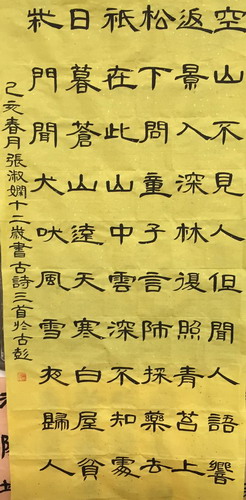 空山不見人但聞人語響
返景入深林復照青苔上
松下問童子言師採藥去
祇在此山中雲深不知處
日暮蒼山遠天寒白屋貧
柴門聞犬吠風雪夜歸人
己亥春月張淑嫻十二歲書古詩三首於古彭